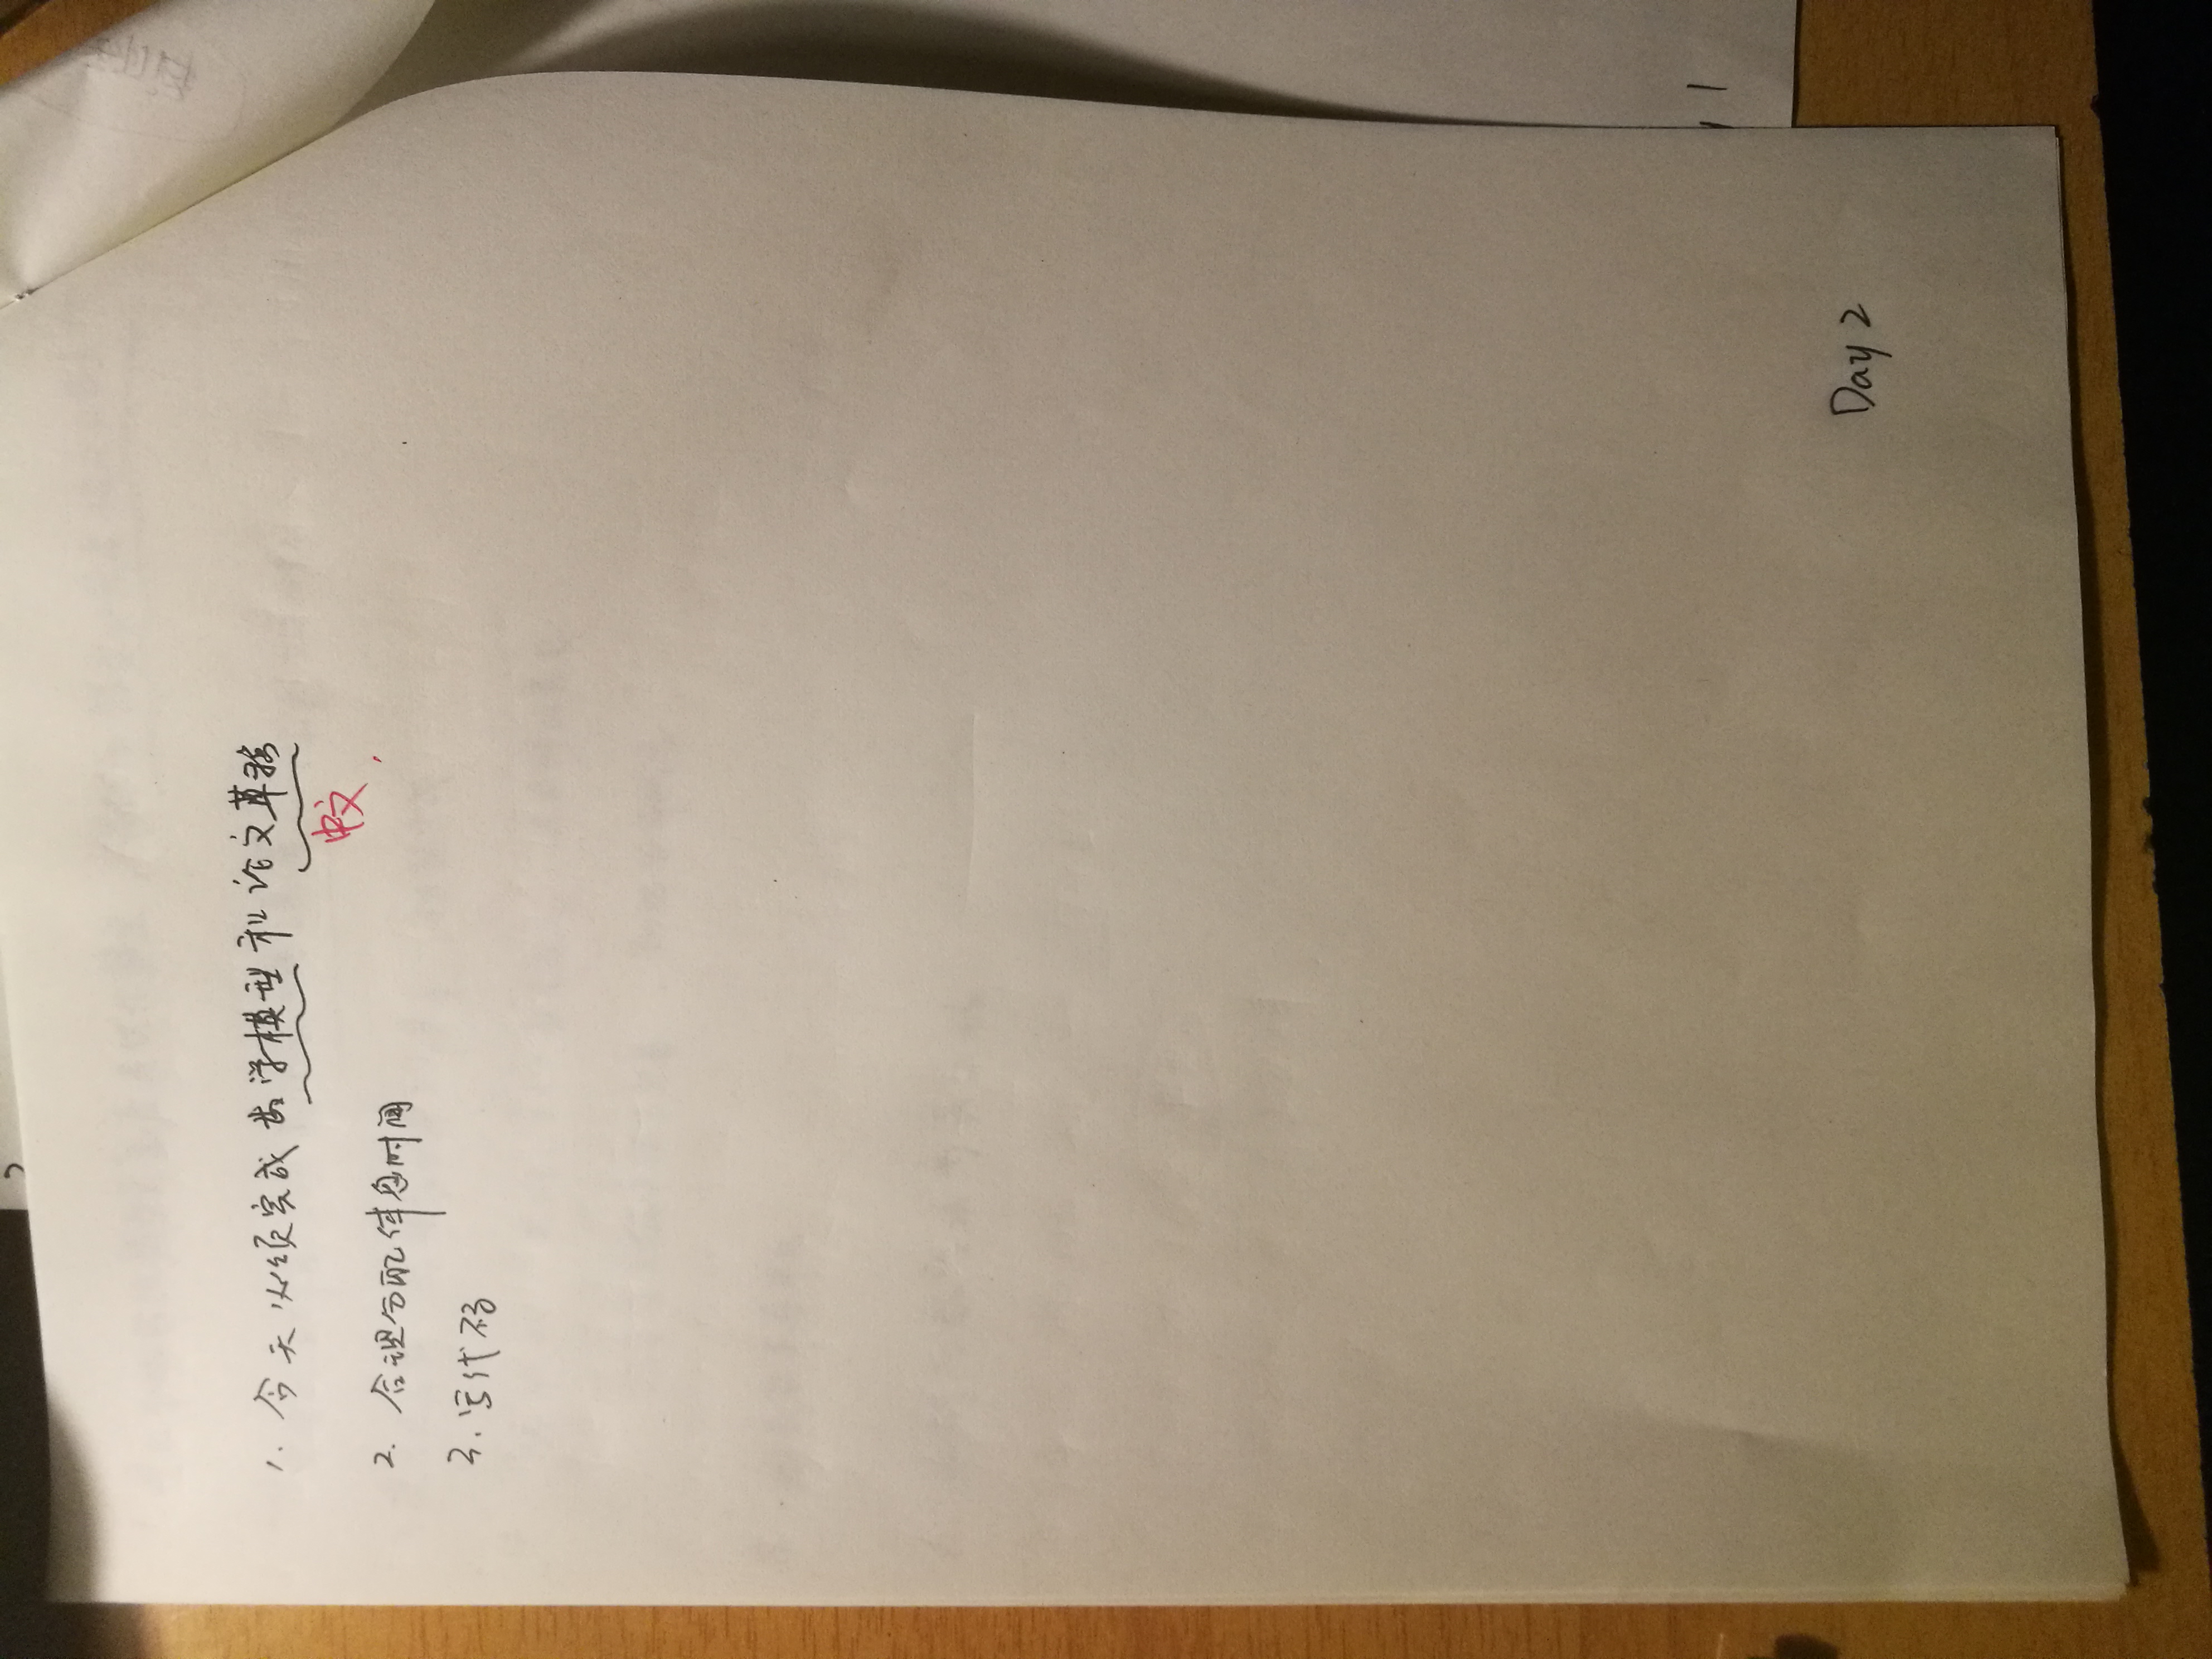 1. 今天必须完成数学模型和论文草稿
中文
2. 合理分配休息时间
3. 写代码
Day 2